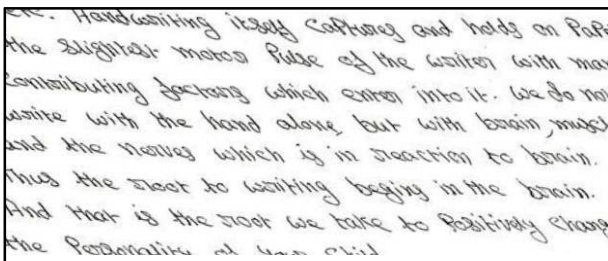 etc. Handwriting itself captures and holds on Pape
the slightest motor Pulse of the writer with man
contributing factors which enter into it. We do no
write with the hand alone, but with brain, muscl
and the nerves which is in reaction to brain.
Thus the root to writing begins in the brain.
And that is the root we take to Positively change
the Personality of your child